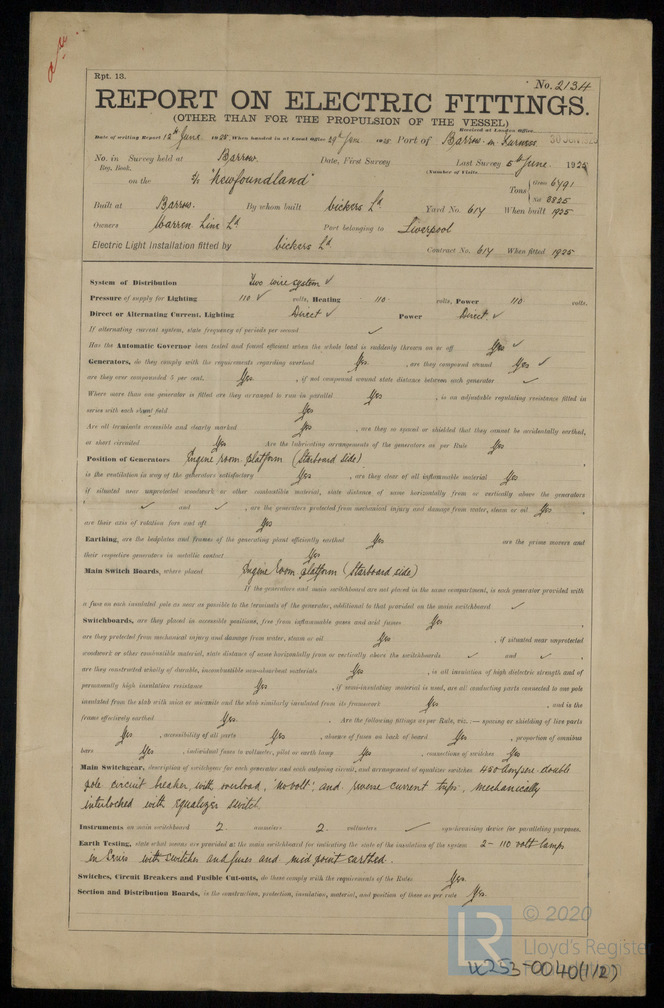 Rpt. 13.
No. 2134
REPORT ON ELECTRIC FITTINGS.
(OTHER THAN FOR THE PROPULSION OF THE VESSEL)
Received at London Office
Date of writing Report 12th June 1925 When handed in at Local Office 29th June 1925 Port of Barrow-in-Furness 30 JUN 1925
No. in Survey held at Barrow. Date, First Survey Last Survey 5th June 1925
Reg. Book. (Number of Visits.
on the "Newfoundland" Tons { Gross 6791
Net 3825
Built at Barrow. By whom built Vickers Ld. Yard No. 614 When built 1925
Owners Warren Line Ld Port belonging to Liverpool
Electric Light Installation fitted by Vickers Ld. Contract No. 614 When fitted 1925
System of Distribution Two wire system ✓
Pressure of supply for Lighting 110 ✓ volts, Heating 110 volts, Power 110 volts.
Direct or Alternating Current, Lighting Direct ✓ Power Direct ✓
If alternating current system, state frequency of periods per second ✓
Has the Automatic Governor been tested and found efficient when the whole load is suddenly thrown on or off Yes ✓
Generators, do they comply with the requirements regarding overload Yes , are they compound wound Yes ✓
are they over compounded 5 per cent. Yes , if not compound wound state distance between each generator ✓
Where more than one generator is fitted are they arranged to run in parallel Yes , is an adjustable regulating resistance fitted in
series with each shunt field Yes
Are all terminals accessible and clearly marked Yes , are they so spaced or shielded that they cannot be accidentally earthed,
or short circuited Yes Are the lubricating arrangements of the generators as per Rule Yes
Position of Generators Engine room platform (Starboard side)
is the ventilation in way of the generators satisfactory Yes , are they clear of all inflammable material Yes
if situated near unprotected woodwork or other combustible material, state distance of same horizontally from or vertically above the generators
✓ and ✓ , are the generators protected from mechanical injury and damage from water, steam or oil Yes ,
are their axes of rotation fore and aft Yes
Earthing, are the bedplates and frames of the generating plant efficiently earthed Yes are the prime movers and
their respective generators in metallic contact Yes
Main Switch Boards, where placed Engine room platform (Starboard side)
If the generators and main switchboard are not placed in the same compartment, is each generator provided with
a fuse on each insulated pole as near as possible to the terminals of the generator, additional to that provided on the main switchboard ✓
Switchboards, are they placed in accessible positions, free from inflammable gases and acid fumes Yes ,
are they protected from mechanical injury and damage from water, steam or oil Yes , if situated near unprotected
woodwork or other combustible material, state distance of same horizontally from or vertically above the switchboards ✓ and ✓ ,
are they constructed wholly of durable, incombustible non-absorbent materials Yes , is all insulation of high dielectric strength and of
permanently high insulation resistance Yes , if semi-insulating material is used, are all conducting parts connected to one pole
insulated from the slab with mica or micanite and the slab similarly insulated from its framework Yes , and is the
frame effectively earthed Yes. Are the following fittings as per Rule, viz. :— spacing or shielding of live parts
Yes , accessibility of all parts Yes , absence of fuses on back of board Yes , proportion of omnibus
bars Yes , individual fuses to voltmeter, pilot or earth lamp Yes , connections of switches Yes
Main Switchgear, description of switchgear for each generator and each outgoing circuit, and arrangement of equalizer switches 450 Ampere double
pole circuit breaker, with overload, "no volt", and reverse current trips, mechanically
interlocked with equalizer switch.
Instruments on main switchboard 2 ammeters 2 voltmeters ✓ synchronising device for paralleling purposes.
Earth Testing, state what means are provided at the main switchboard for indicating the state of the insulation of the system 2 - 110 volt lamps
in series with switches and fuses and mid point earthed.
Switches, Circuit Breakers and Fusible Cut-outs, do these comply with the requirements of the Rules Yes.
Section and Distribution Boards, is the construction, protection, insulation, material, and position of these as per rule Yes.
© 2020
LR Lloyd's Register
Foundation
W253-0040(1/2)